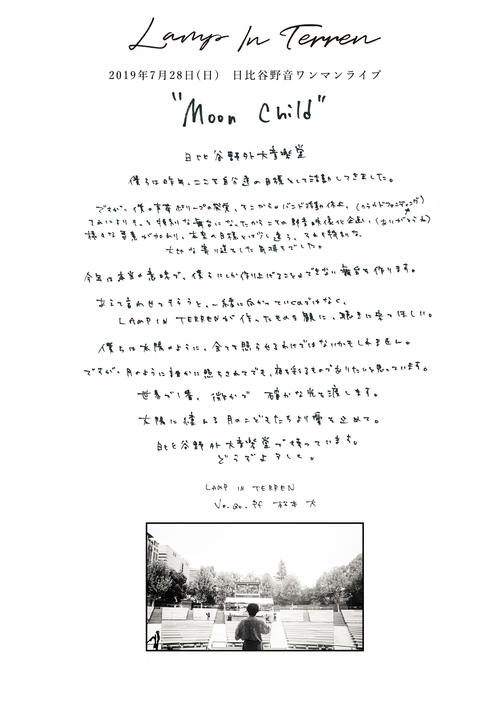 Lamp In Terren
2019年7月28日(日) 日比谷野音ワンマンライブ
"Moon Child"
日比谷野外大音楽堂
僕らは昨年、ここを自分達の目標として活動してきました。
ですが、僕の声帯ポリープの発覚、そこからのバンド活動休止、(クラウドファンディング)
てみによりもっと特別な舞台になったからこその野音映像化企画、(ありがとうね)
様々な意見が加わり、本来の目標とは少し違う、それも特別な、
大切な寄り道をした気持ちでした。
今年は本当の意味で、僕らにしか作り上げることのできない舞台を作ります。
あえて言わせてもらうと、一緒に広がっていくのではなく、
LAMP IN TERRENが作ったものを観に、聴きに来てほしい。
僕らは太陽のように、全てを照らせるわけではないかもしれません。
ですが、月のように誰かに照らされてでも、夜を彩るものでありたいと思っています。
世界で1番、微かで 確かな光を渡します。
太陽に憧れる月のこどもたちより愛を込めて。
日比谷野外大音楽堂で待っています。
どうぞよろしく。
LAMP IN TERREN
Vo.Gt.Pf 松本 大